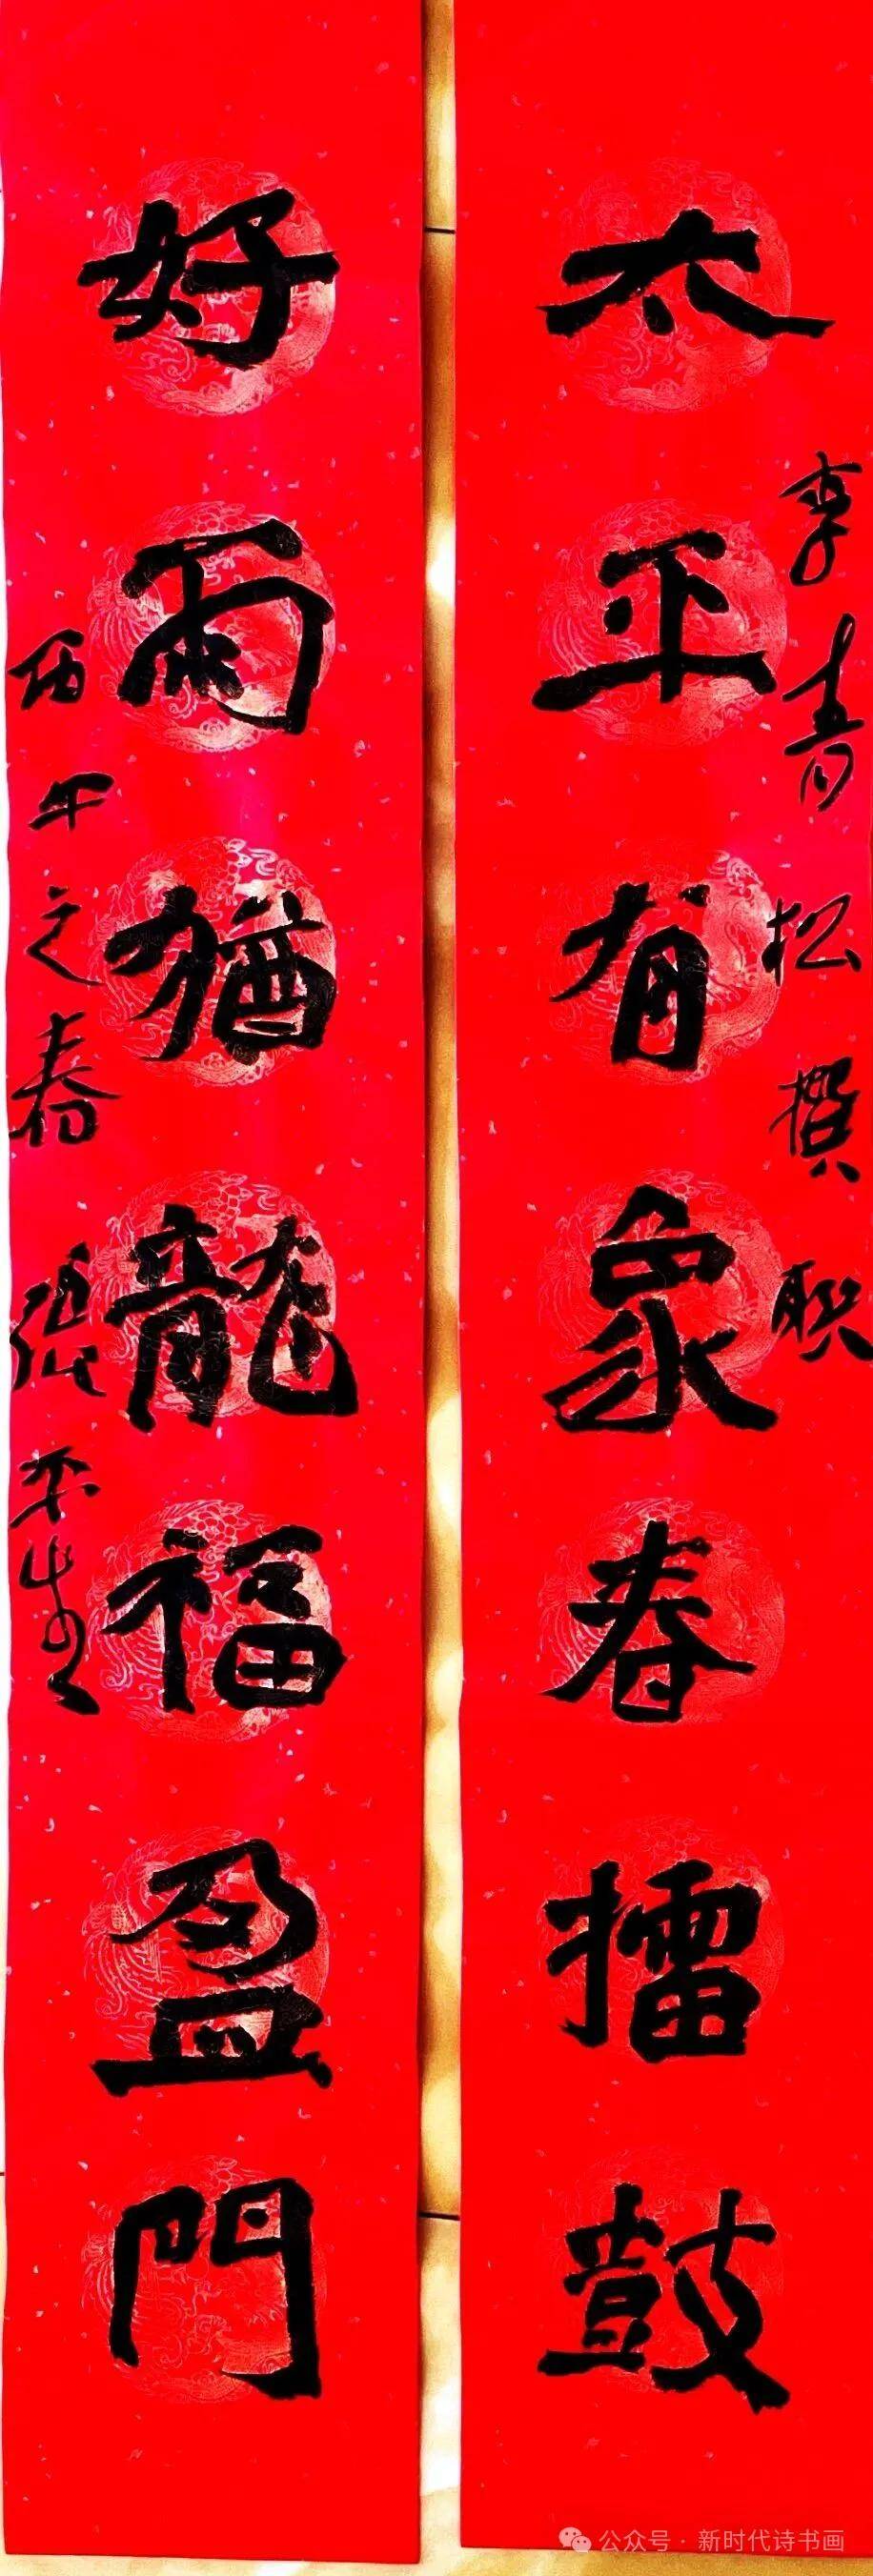 太平有象春擂鼓
李青松撰联
好雨猶龍福盈門
丙午之春 張平生
公众号·新时代诗书画